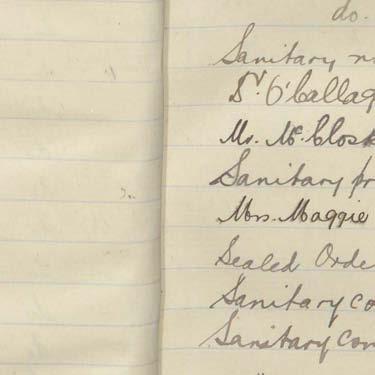 do.
Sanitary
Dr. O'Callag
Mr. McClosk
Sanitary pr
Mrs. Maggie
Sealed Orde
Sanitary co
Sanitary con